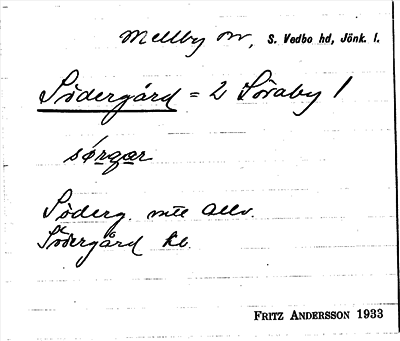 Mellby sn, S. Vedbo hd, Jönk. l.
Södergård = 2 Söraby 1
sö́rgar
Söderg. mtl allm.
Södergård kb.
FRITZ ANDERSSON 1933